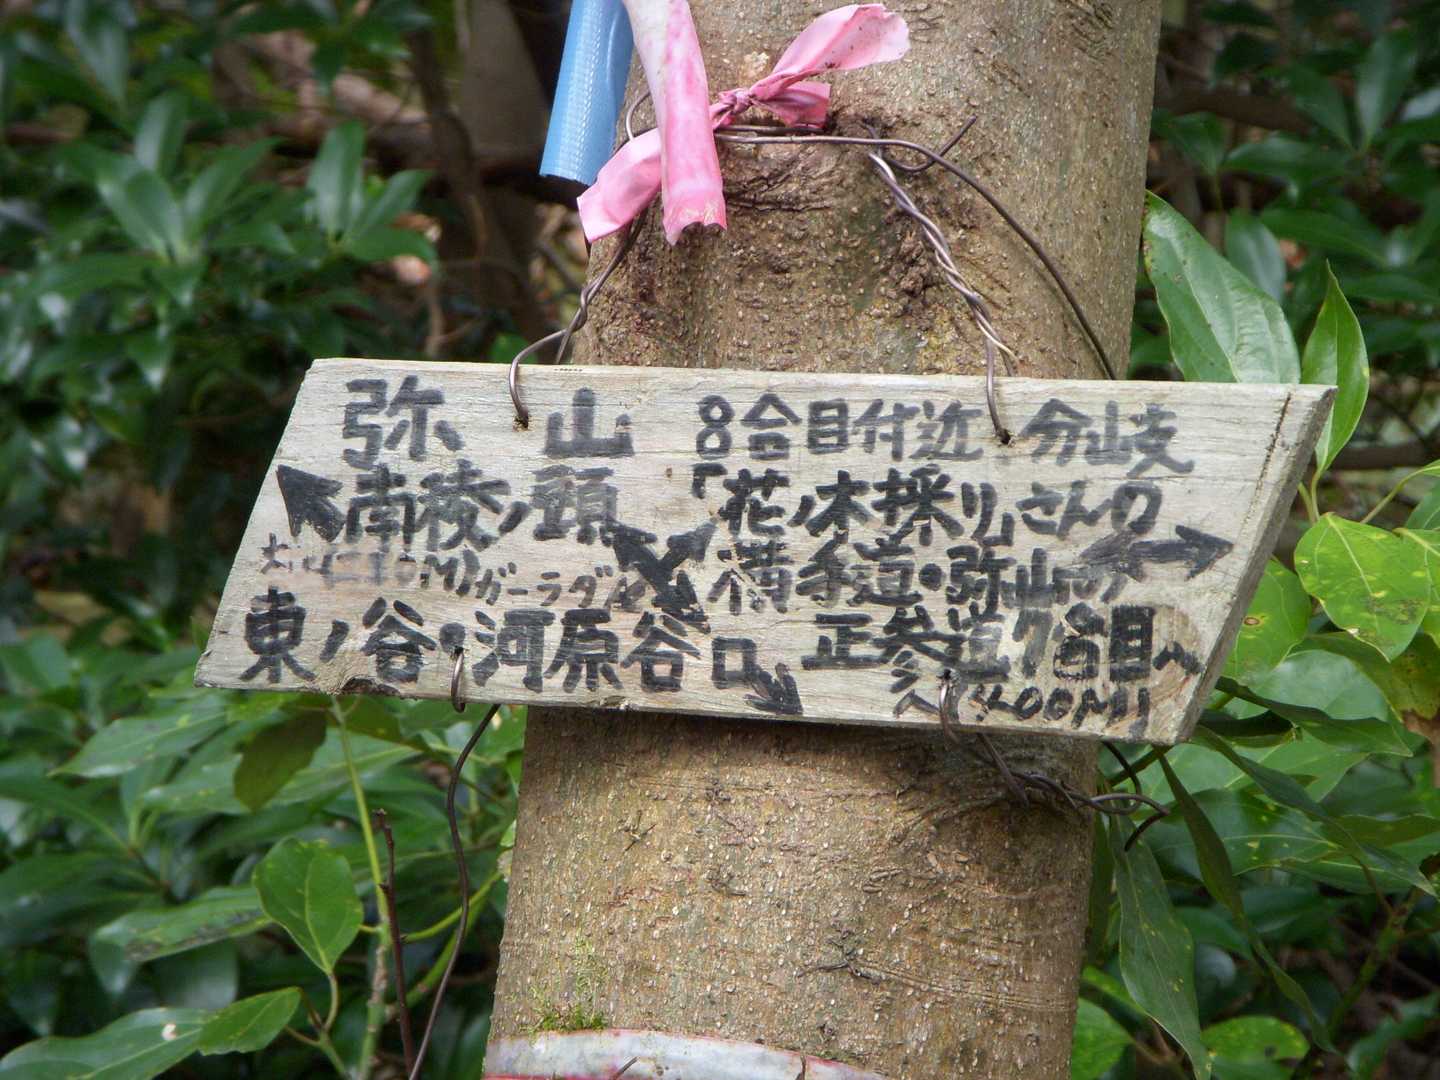 弥山 8合目付近 分岐
南稜ノ頭 「花ノ木採り」さんの
ガーラダケ 横手道・弥山の
東ノ谷・河原谷口 正参道7合目へ
へ 400M)